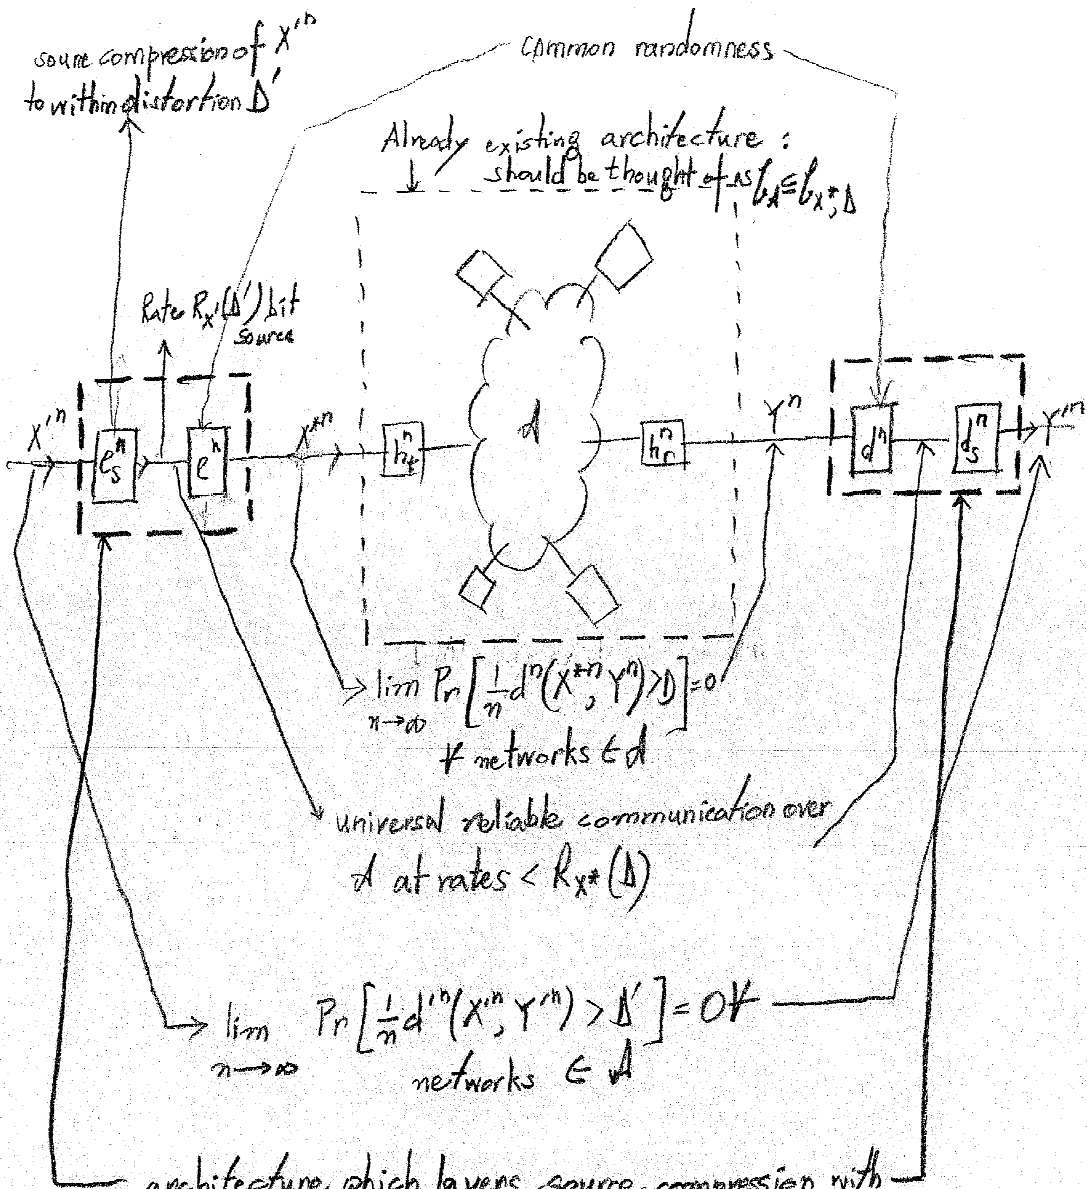 soure compression of X'ⁿ
to within distortion D'
common randomness
Already existing architecture :
should be thought of as
Rate R_X'(D') bit
source
X'ⁿ
e_sⁿ
eⁿ
X*ⁿ
h_tⁿ
A
h_rⁿ
Yⁿ
dⁿ
d_sⁿ
Y'ⁿ
lim Pr[1/n dⁿ(X*ⁿ, Yⁿ) > D] = 0
n→∞
∀ networks ∈ A
universal reliable communication over
A at rates < R_X*(D)
lim Pr[1/n d'ⁿ(X'ⁿ, Y'ⁿ) > D'] = 0 ∀
n→∞
networks ∈ A
architecture which layers source compression with